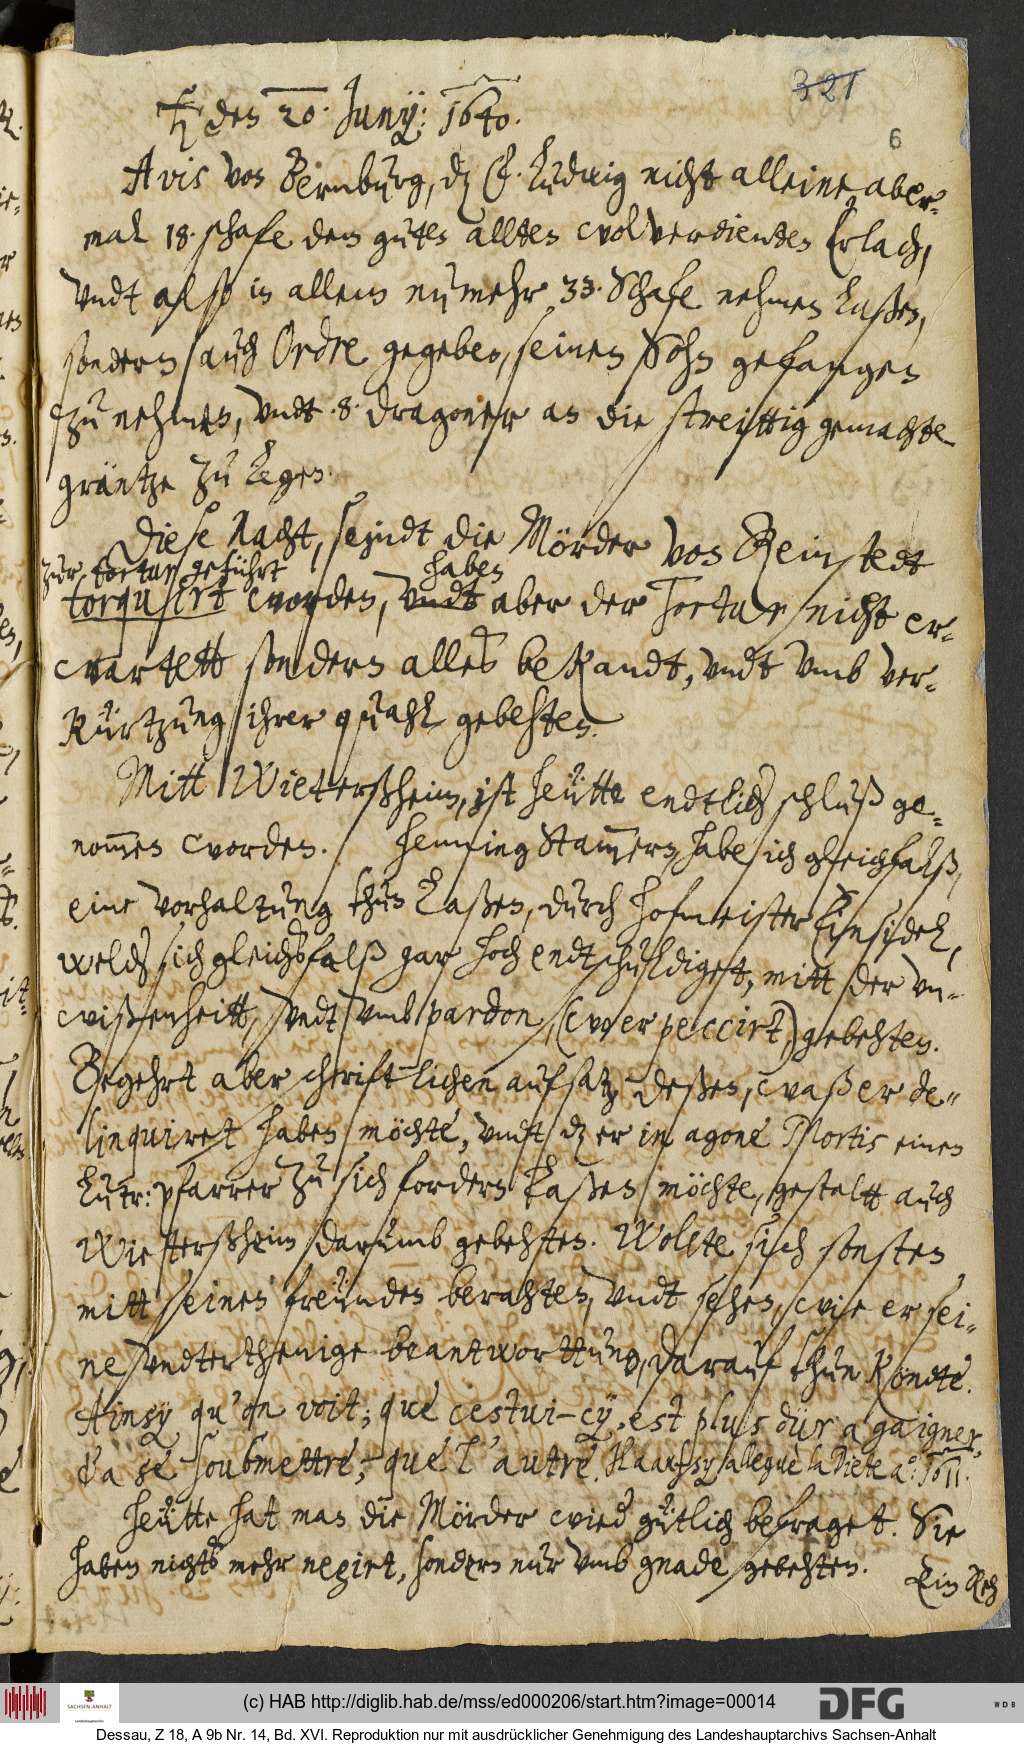 321
6
♄ den 20. Junÿ: 1640.
Avis von Bernburg, dz F. Ludwig nicht alleine, aber-
mal 18. schafe dem guten allten wolverdienten Erlach,
vndt also in allem numehr 33. Schafe nehmen laßen,
sondern auch Ordre gegeben, seinen Sohn gefangen
zu nehmen, vndt .8. dragoner an die streittig gemachte
gräntze zu legen.
Diese Nacht, seindt die Mörder von Reinstedt
zur tortur geführt haben
torquirt worden, vndt aber der Tortur nicht er-
wartett sondern alles bekandt, vndt vmb ver-
kürtzung ihrer quahl gebehten.
Mitt Wietersheim, ist heütte endtlich schluß ge-
nommen worden. / Henning Stammern habe ich gleichfalß,
eine vorhaltung thun laßen, durch hofmeister Einsidel,
welch sich gleichsfalß gar hoch endtschuldiget, mitt der vn-
wißenheitt, vndt vmb pardon, (wo er peccirt) gebehten.
Begehrt aber schrift-lichen aufsatz, deßen, waß er de-
linquiret haben möchte, vndt dz er in agone Mortis einen
Lutr: pfarrer zu sich fordern laßen möchte, gestaltt auch
Wietersheim darumb gebehten. Wollte sich sonsten
mitt seinen freünden berahten, vndt sehen, wie er sei-
ne vndterthenige beantworttung, darauf thun köndte.
Ainsy qu'on voit; que cestui-cy, est plus dur a gaigner,
& a se soubmettre, que l'autre. Haarsy allegue la Diete a.o: 1611.
Heütte hat man die Mörder wied gütlich befraget. Sie
haben nichts mehr negirt, sondern nur vmb gnade gebehten.
Ein Reh
SACHSEN-ANHALT
(c) HAB http://diglib.hab.de/mss/ed000206/start.htm?image=00014
DFG
WDB
Dessau, Z 18, A 9b Nr. 14, Bd. XVI. Reproduktion nur mit ausdrücklicher Genehmigung des Landeshauptarchivs Sachsen-Anhalt